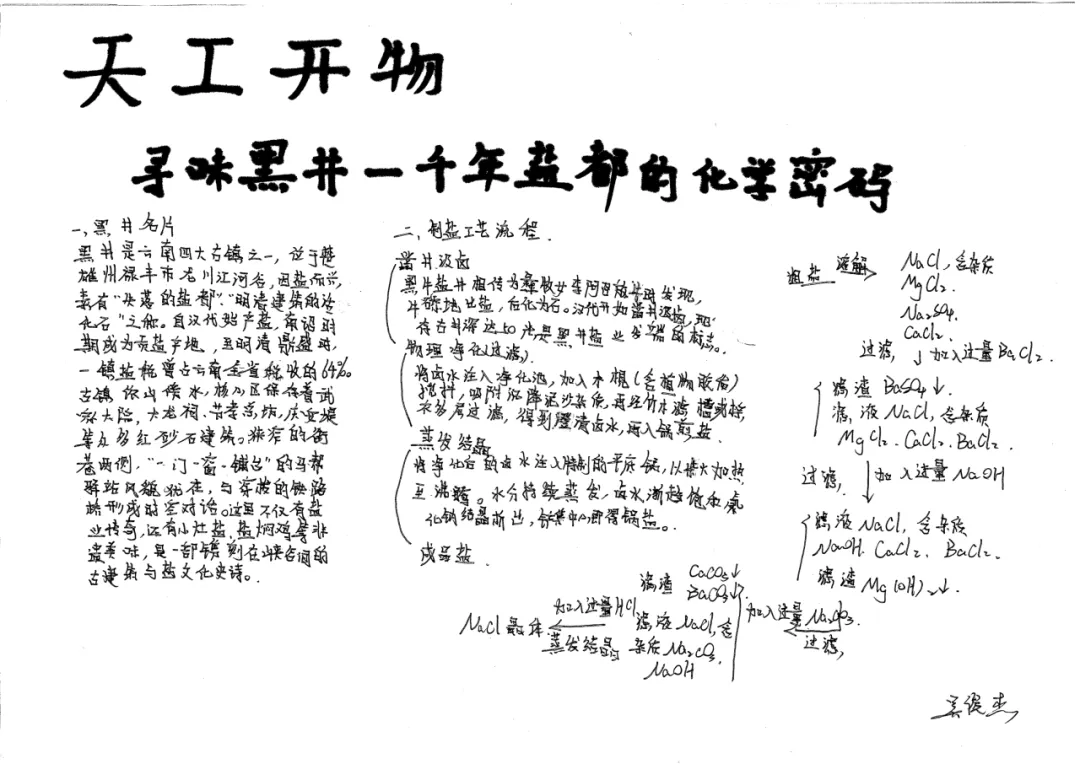 天工开物
寻味黑井—千年盐都的化学密码
一、黑井名片
黑井是云南四大古镇之一,位于楚
雄州禄丰市龙川江河谷,因盐而兴,
素有“失落的盐都”“明清建筑的活
化石”之称。自汉代始产盐,南诏时
期成为贡盐产地,至明清鼎盛时,
一镇盐税曾占云南全省税收的64%。
古镇依山傍水,核心区保存着武
家大院、大龙祠、节孝总坊、庆安堤
等众多红砂石建筑。狭窄的街
巷两侧,“一门一窗一铺台”的马帮
驿站风貌犹在,与穿梭的铁路
桥形成时空对话。这里不仅有盐
业传奇,还有小灶盐、盐焖鸡等非
遗美味,是一部镌刻在峡谷间的
古建筑与盐文化史诗。
二、制盐工艺流程
凿井汲卤
黑牛盐井相传为彝族女李阿召放牛时发现,
牛舔地出盐,后化为石。汉代开始凿井汲卤,现
存古井深达80米是黑井盐业发端的标志。
物理净化(过滤)
将卤水注入净化池,加入木棍(含植物胶后)
搅拌,吸附沉降泥沙杂质,再经竹木滤槽或棕
衣多层过滤,得到澄清卤水,再入锅煎盐
蒸发结晶
将净化后的卤水注入特制的平底锅,以柴火加热
至沸腾。水分持续蒸发,卤水渐趋饱和氯
化钠结晶析出,铁集中心即得锅盐。
成品盐
粗盐 溶解 NaCl,含杂质
MgCl₂.
Na₂SO₄.
CaCl₂.
过滤,↓加入过量BaCl₂.
滤渣 BaSO₄↓.
滤液 NaCl,含杂质
MgCl₂. CaCl₂. BaCl₂.
过滤, 加入过量NaOH
滤液 NaCl,含杂质
NaOH. CaCl₂. BaCl₂.
滤渣 Mg(OH)₂↓.
加入过量Na₂CO₃.
过滤,
滤渣 CaCO₃↓
BaCO₃↓
滤液 NaCl,含
杂质Na₂CO₃.
NaOH
加入过量HCl
蒸发结晶
NaCl晶体
吴俊杰